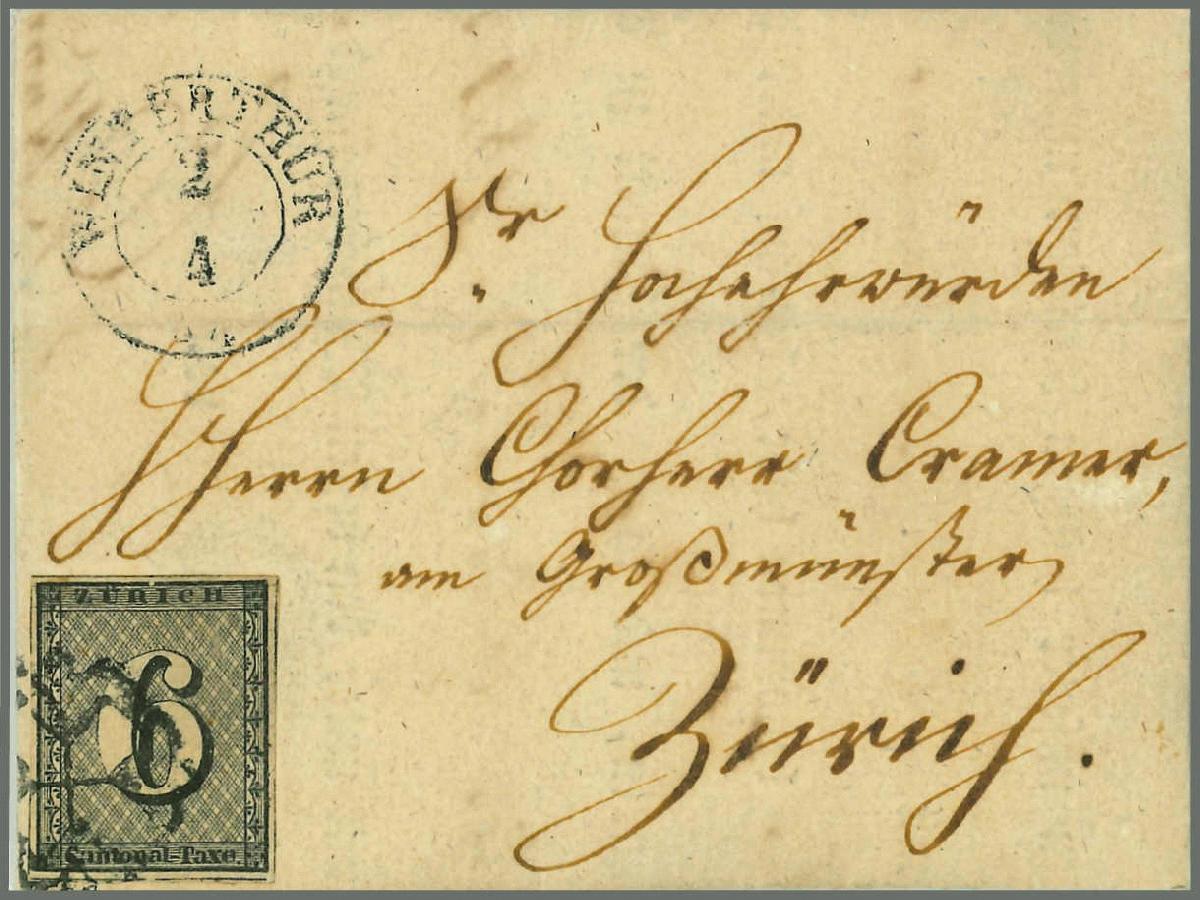 WINTERTHUR
2
4
Sr. Hochehrwürden
Herrn Chorherr Cramer,
am Großmünster
Zürich.
ZÜRICH
6
Cantonal-Taxe.